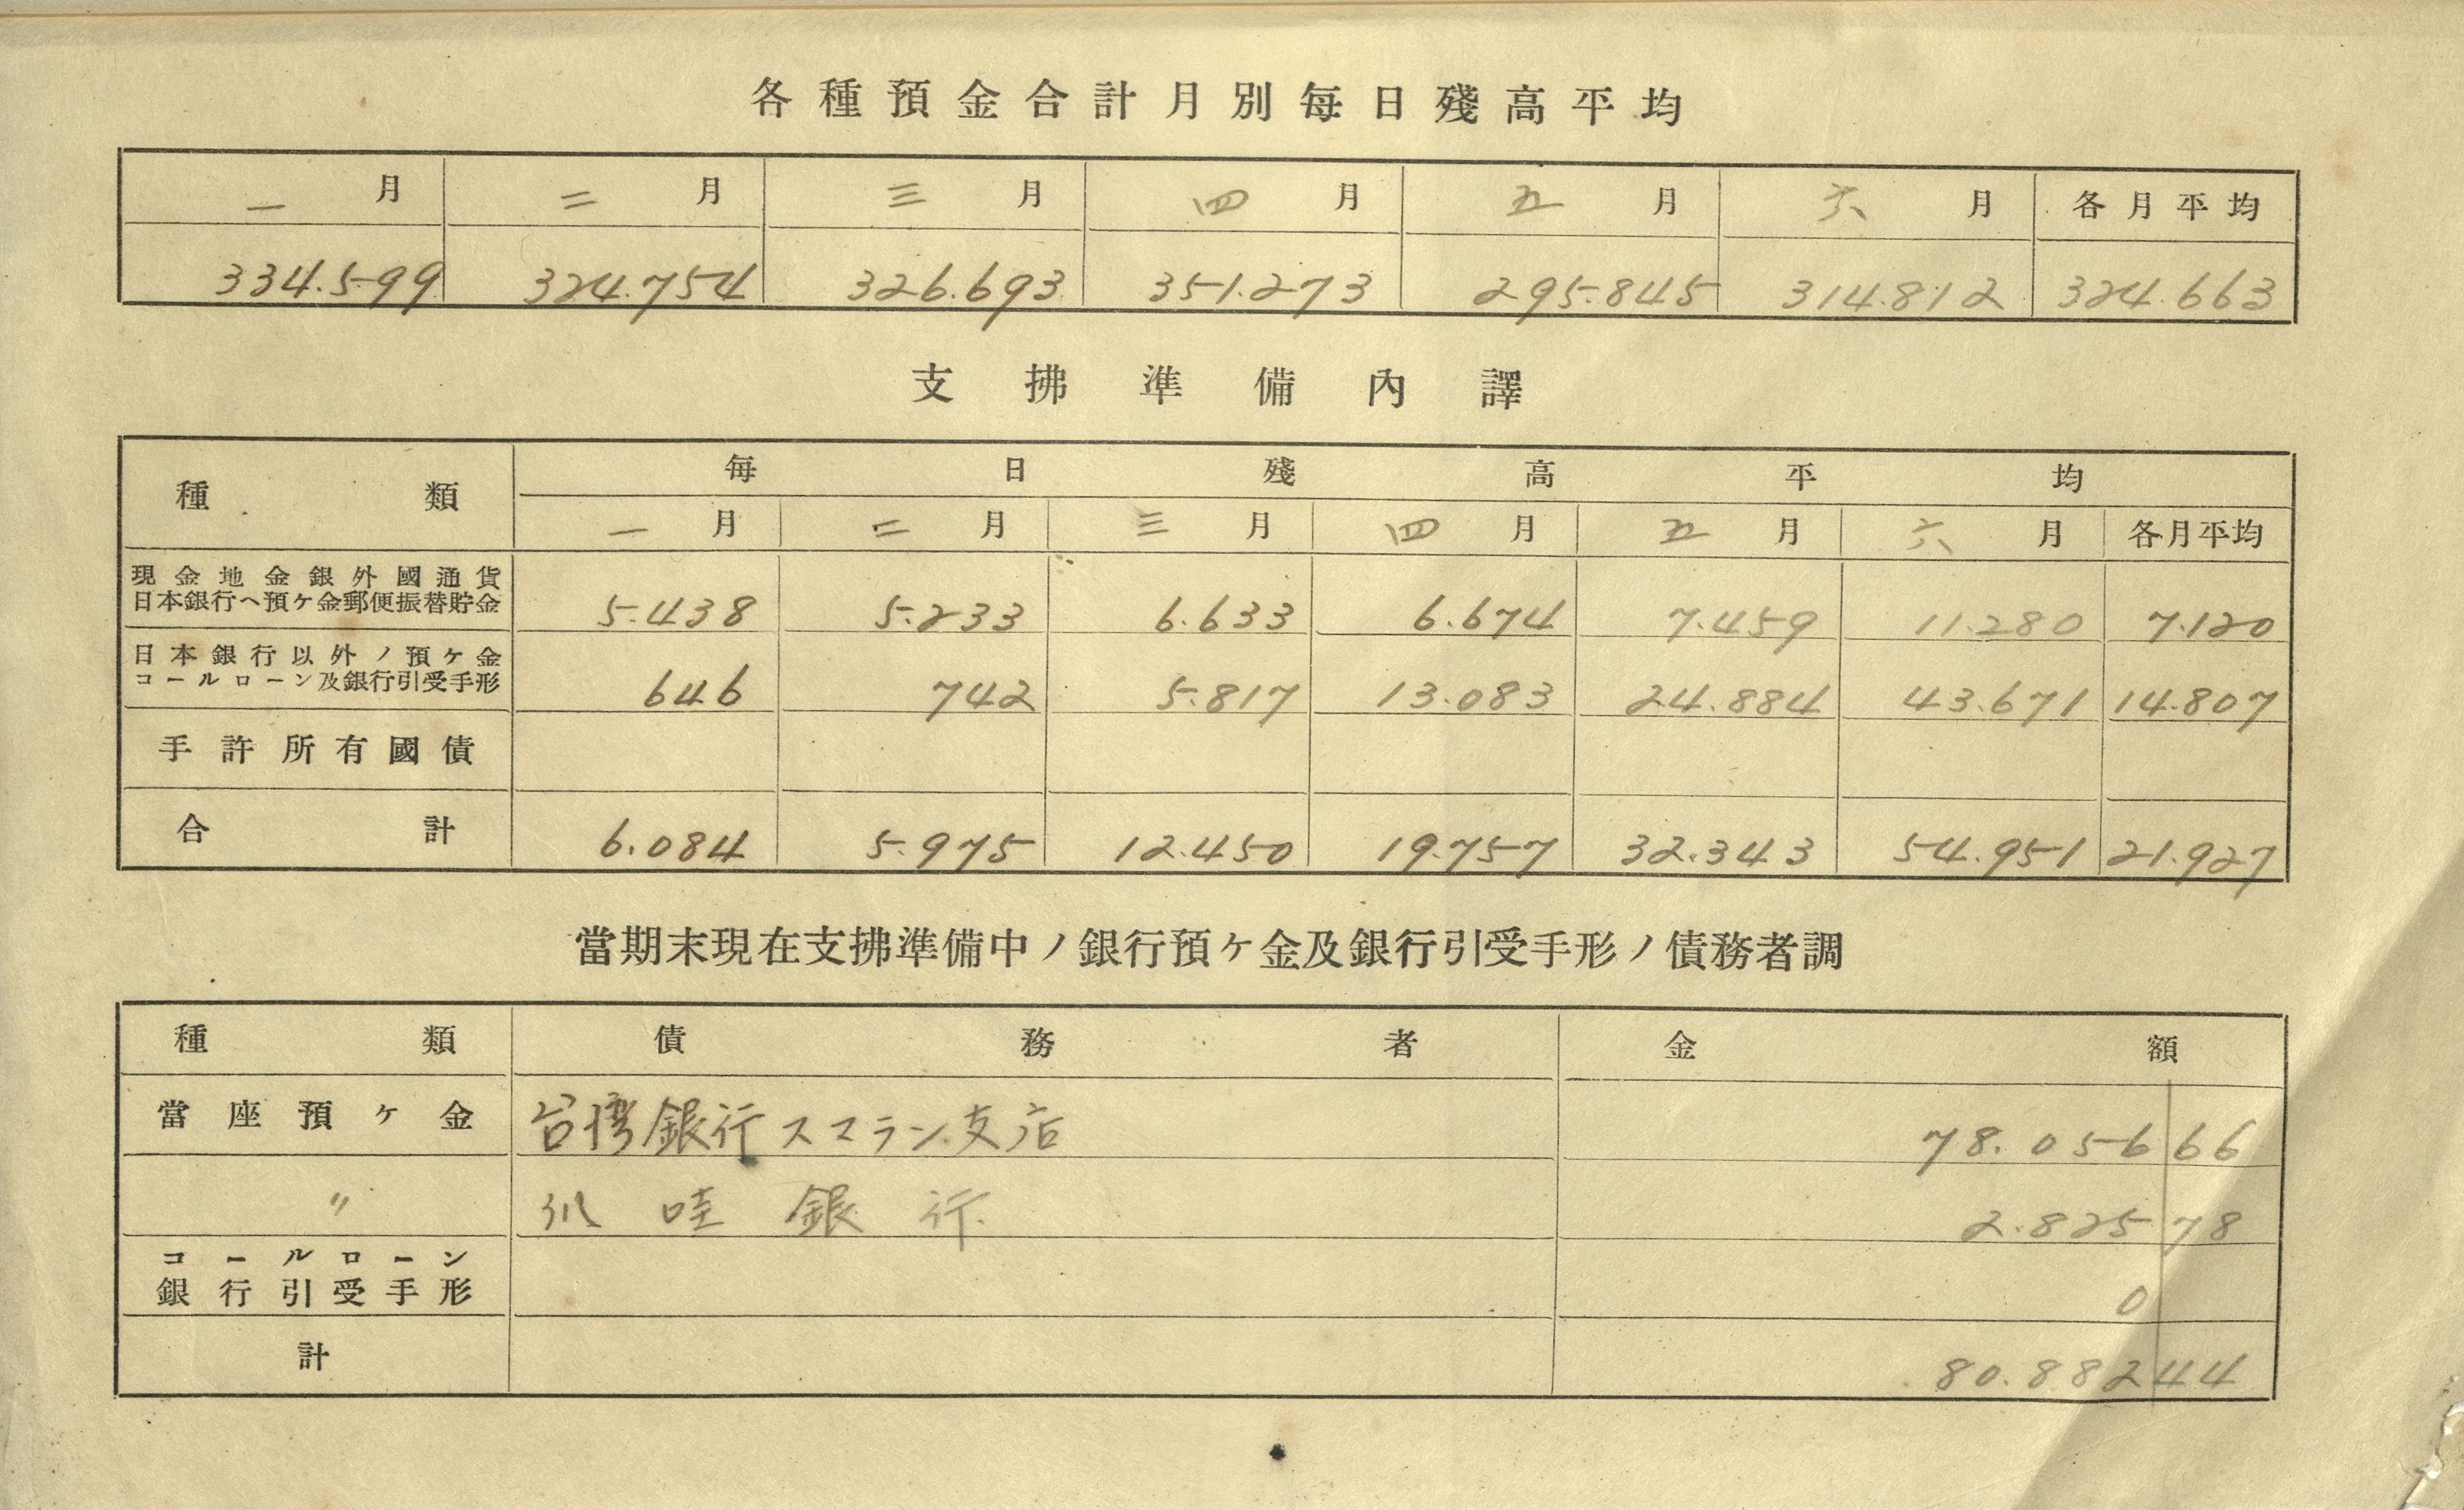 各種預金合計月別每日殘高平均
一月 二月 三月 四月 五月 六月 各月平均
334.599 324.754 326.693 351.273 295.845 314.812 324.663
支拂準備內譯
種類 每日殘高平均
一月 二月 三月 四月 五月 六月 各月平均
現金地金銀外國通貨
日本銀行ヘ預ケ金郵便振替貯金 5.438 5.233 6.633 6.674 7.459 11.280 7.120
日本銀行以外ノ預ケ金
コールローン及銀行引受手形 646 742 5.817 13.083 24.884 43.671 14.807
手許所有國債
合計 6.084 5.975 12.450 19.757 32.343 54.951 21.927
當期末現在支拂準備中ノ銀行預ケ金及銀行引受手形ノ債務者調
種類 債務者 金額
當座預ケ金 台湾銀行スマラン支店 78.056 66
〃 爪哇銀行 2.825 78
コールローン
銀行引受手形 0
計 80.882 44